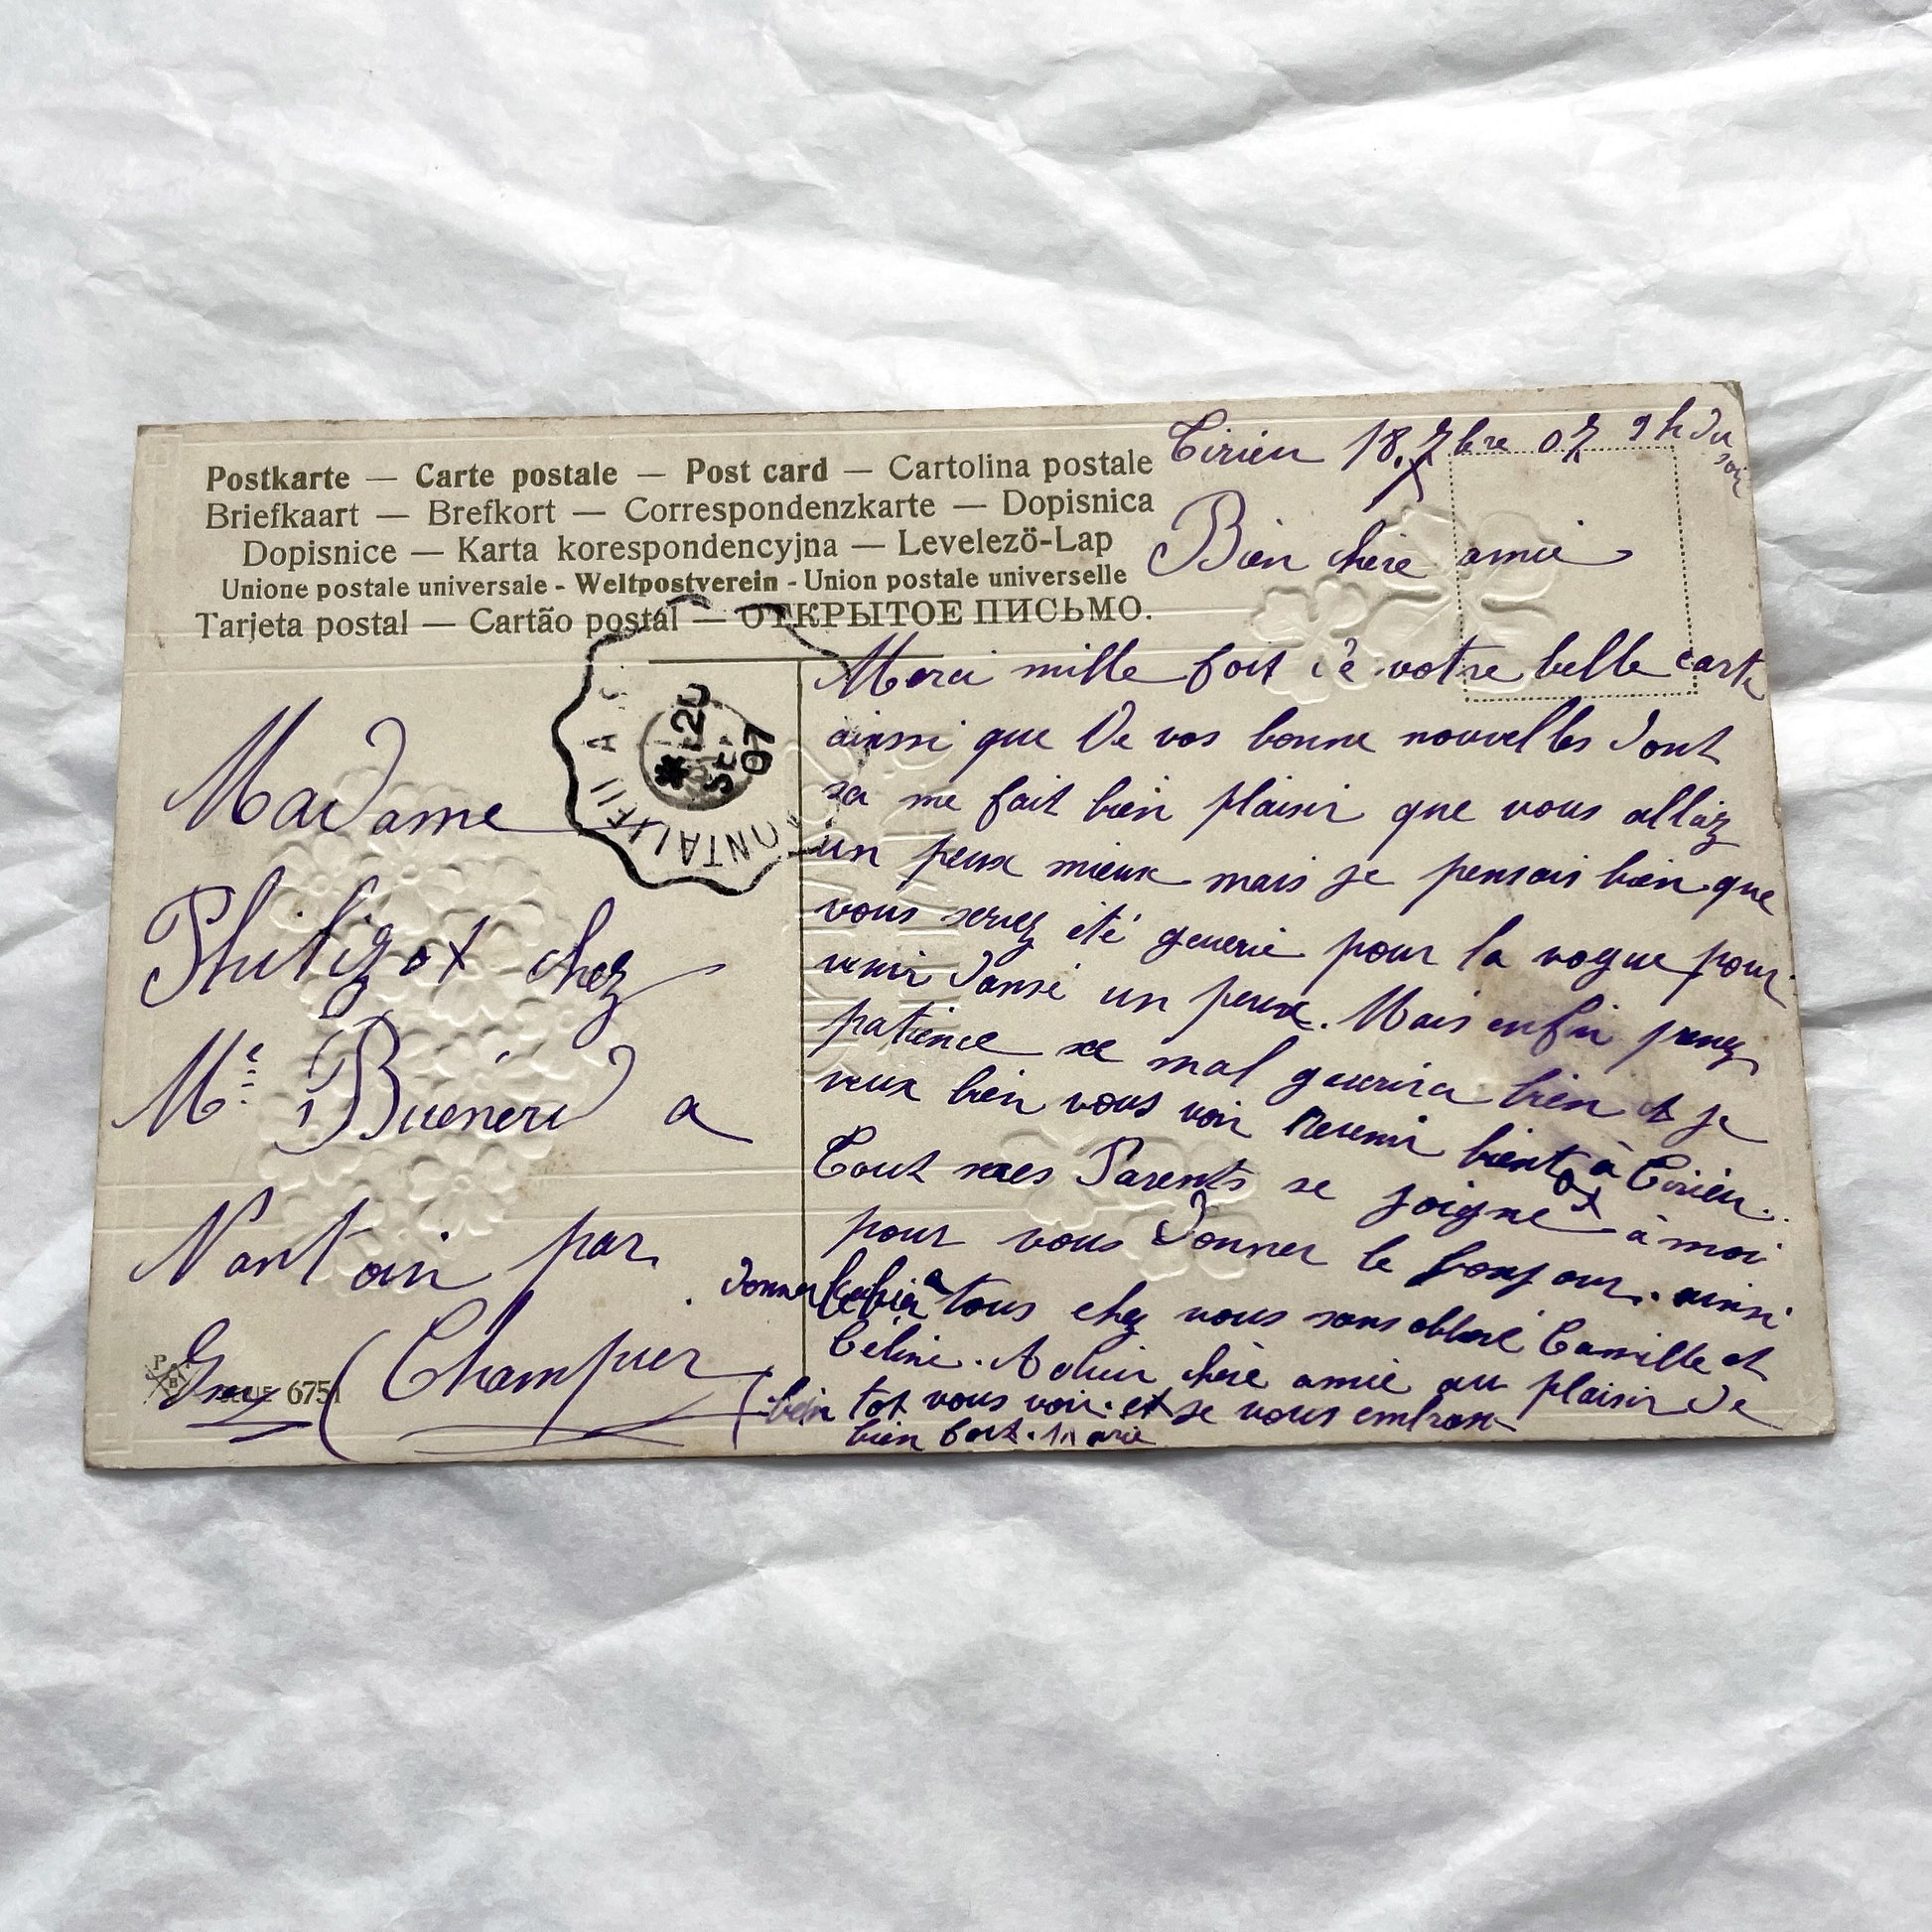 Postkarte — Carte postale — Post card — Cartolina postale
Briefkaart — Brefkort — Correspondenzkarte — Dopisnica
Dopisnice — Karta korespondencyjna — Levelezö-Lap
Unione postale universale - Weltpostverein - Union postale universelle
Tarjeta postal — Cartão postal — ОТКРЫТОЕ ПИСЬМО.
20
07
Madame
Philigot chez
Mr a
Nantoin par
(Champier
6751
Cirieu 18. 7bre 07 9h du
soir
Bien chère amie
Merci mille foit de votre belle carte
ainssi que De vos bonne nouvelles dont
sa me fait bien plaisir que vous alliez
un peux mieux mais je pensais bien que
vous serez été guerie pour la vogue pour
venir dansé un peux. Mais enfin prenez
patience se mal guerira bien et je
veux bien vous voir Revenir bientot à Cirieu.
Tout mes Parents se joigne à moi
pour vous donner le bonjour. ainsi
donner a tous chez vous sans oblié Camille et
Céline. Adieu chère amie au plaisir de
bien tot vous voir. et je vous embras
bien fort. Marie